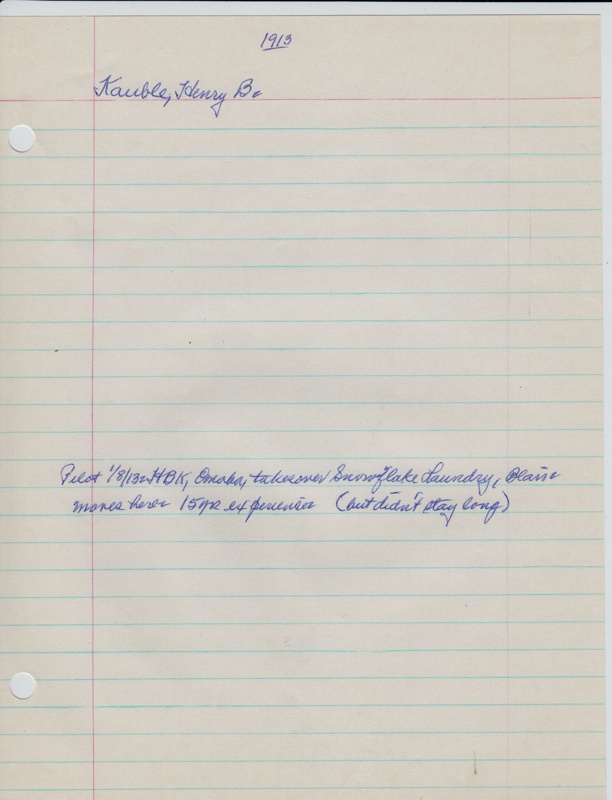 1913
Kauble, Henry B.
Pilot 1/8/13. HBK, Omaha, takesover Snowflake Laundry, Blair.
moves here. 15 yr experience (but didn't stay long)